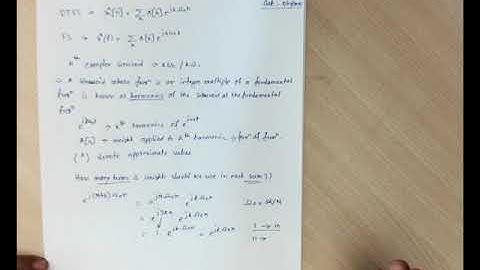 DTFS → x̂[n] = Σ A[k] e^{jkΩ₀n}
FS → x̂(t) = Σ A[k] e^{jkω₀t}
kth complex sinusoid → kΩ₀ / kω₀
A sinusoid whose freqⁿ is an integer multiple of a fundamental
freqⁿ is known as harmonic of the sinusoid at the fundamental
freqⁿ
→ kth harmonic of e^{jω₀t}
A[k] → weight applied to kth harmonic & funⁿ of freqⁿ.
(^) denote approximate value
How many terms & weights should we use in each sum ??
e^{j(N+k)Ω₀n} = e^{jNΩ₀n} e^{jkΩ₀n} Ω₀ = 2π/N
= e^{j2πn} e^{jkΩ₀n}
= 1 · e^{jkΩ₀n} = e^{jkΩ₀n}